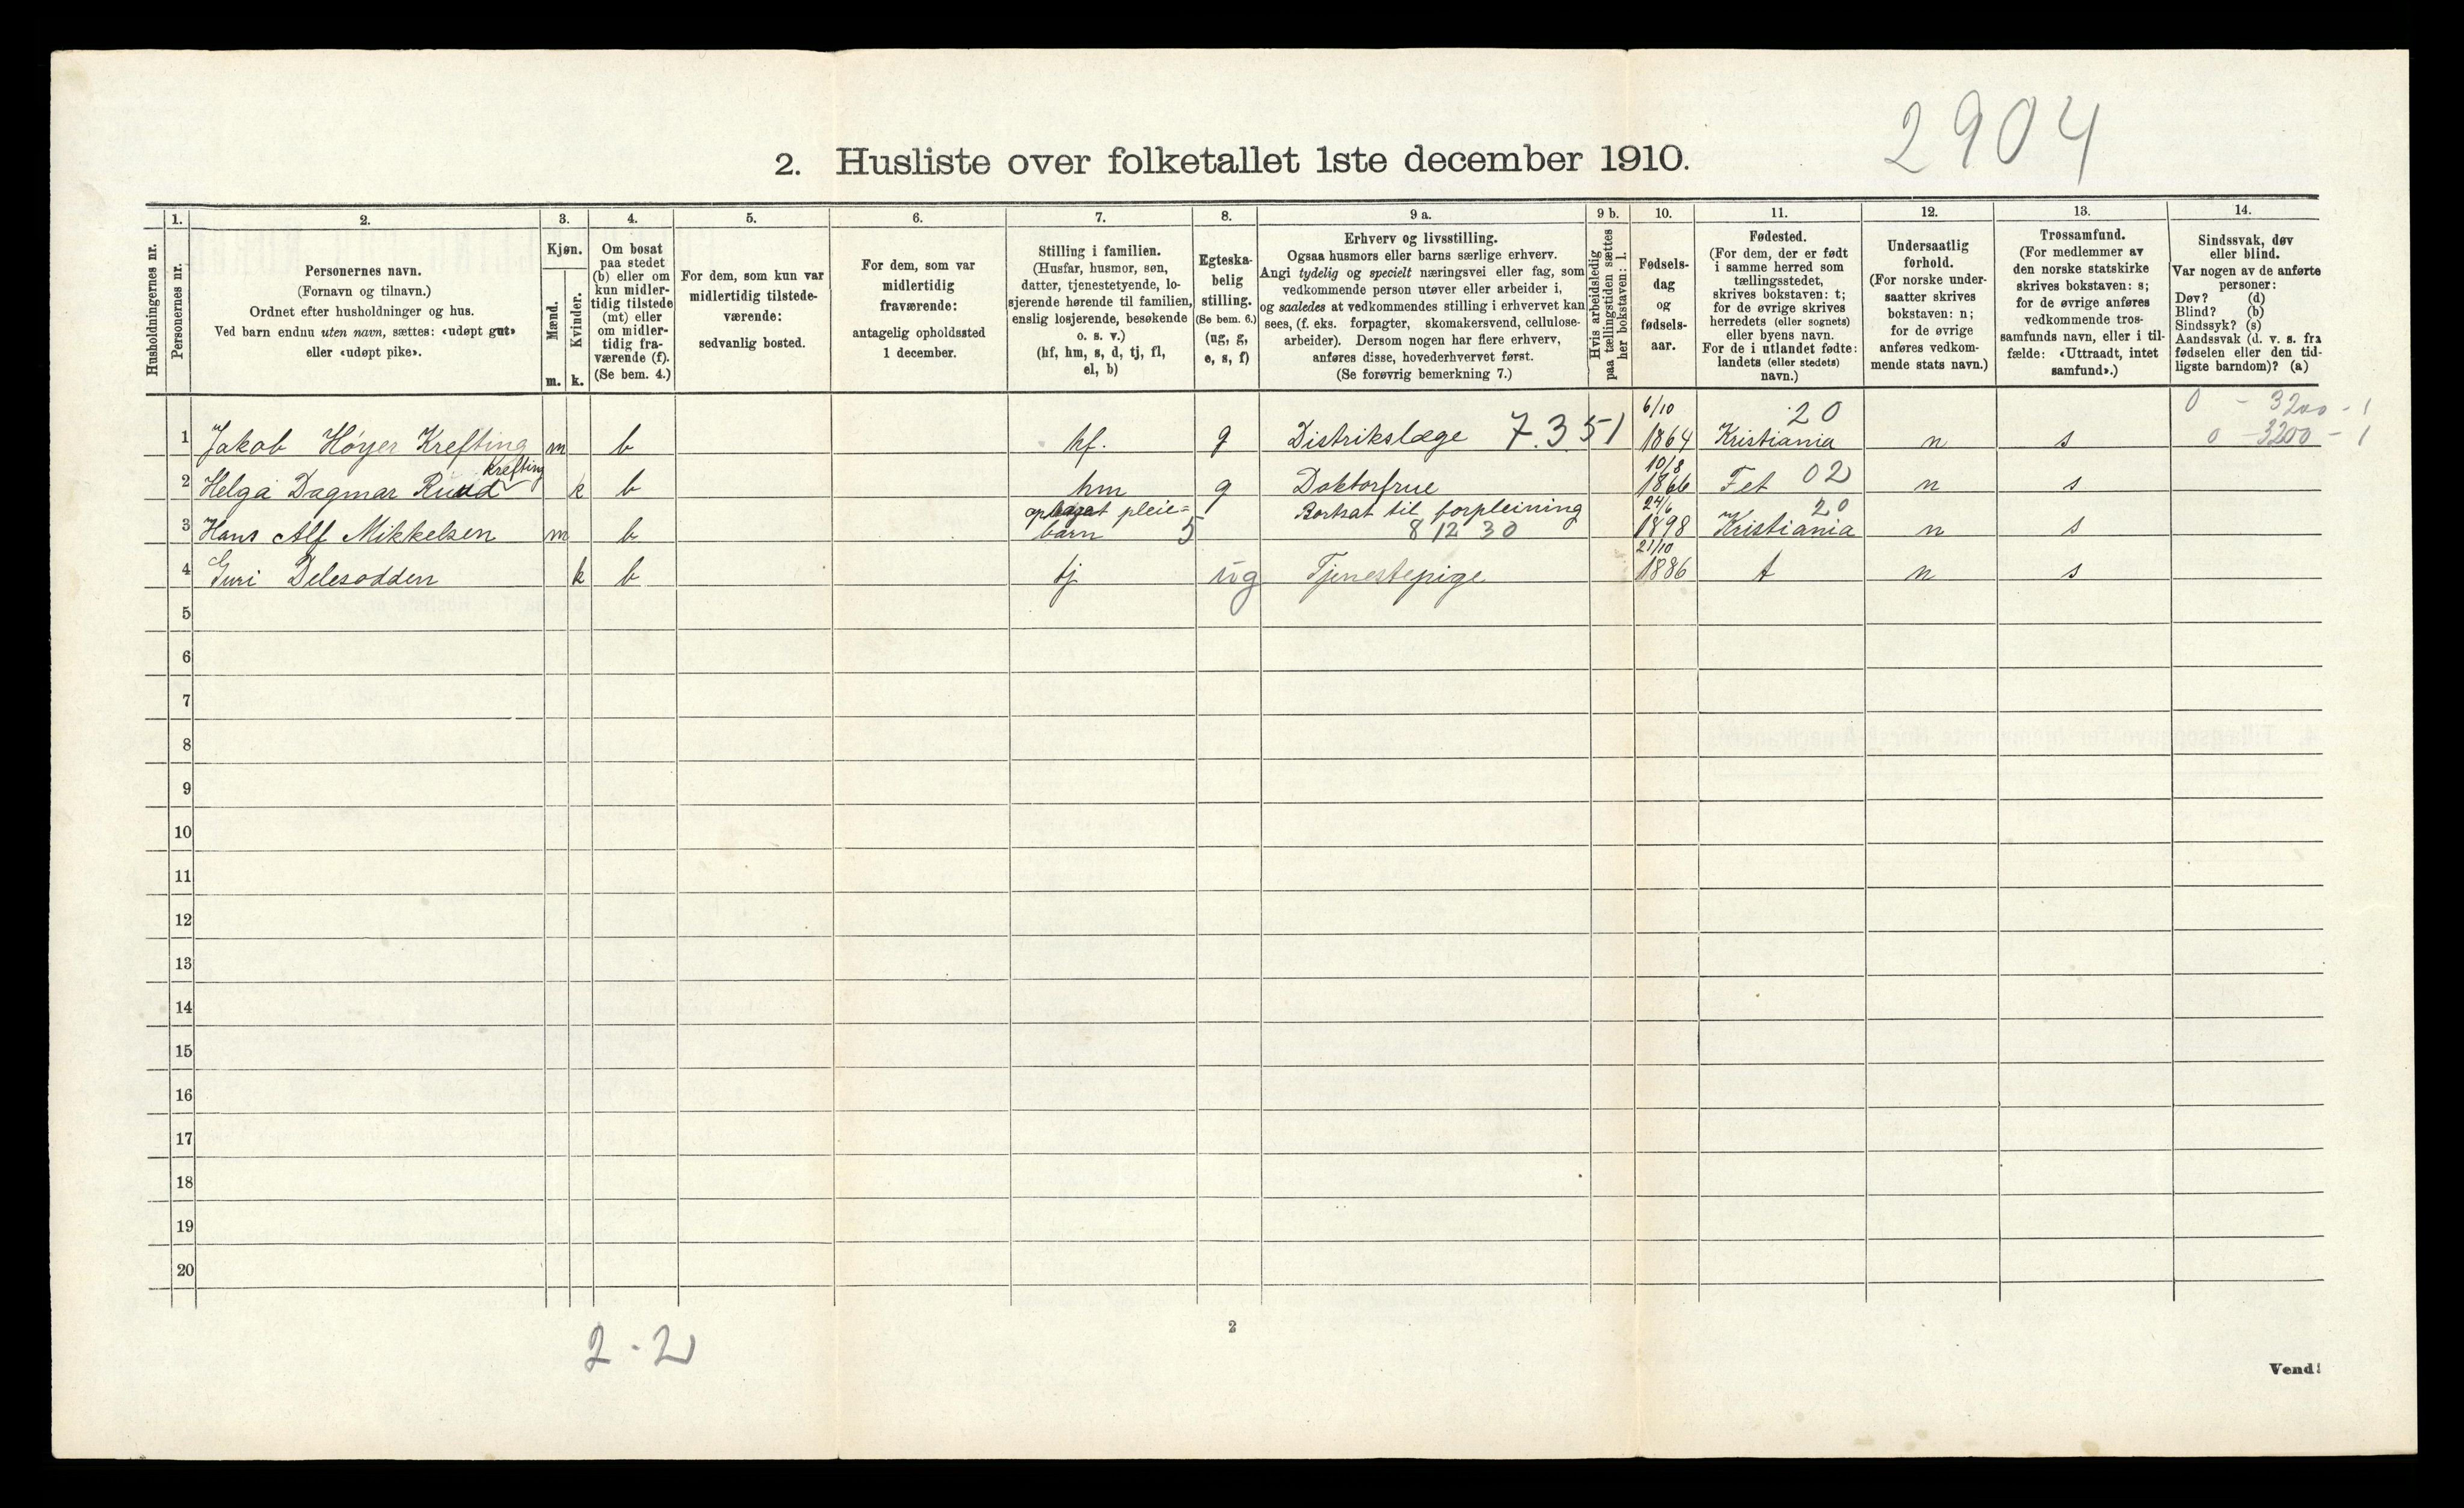 2904
2. Husliste over folketallet 1ste december 1910.
Husholdningernes nr.
1.
Personernes nr.
2.
Personernes navn.
(Fornavn og tilnavn.)
Ordnet efter husholdninger og hus.
Ved barn endnu uten navn, sættes: «udøpt gut»
eller «udøpt pike».
3.
Kjøn.
Mænd.
Kvinder.
m. k.
4.
Om bosat
paa stedet
(b) eller om
kun midler-
tidig tilstede
(mt) eller
om midler-
tidig fra-
værende (f).
(Se bem. 4.)
5.
For dem, som kun var
midlertidig tilstede-
værende:
sedvanlig bosted.
6.
For dem, som var
midlertidig
fraværende:
antagelig opholdssted
1 december.
7.
Stilling i familien.
(Husfar, husmor, søn,
datter, tjenestetyende, lo-
sjerende hørende til familien,
enslig losjerende, besøkende
o. s. v.)
(hf, hm, s, d, tj, fl,
el, b)
8.
Egteska-
belig
stilling.
(Se bem. 6.)
(ug, g,
e, s, f)
9 a.
Erhverv og livsstilling.
Ogsaa husmors eller barns særlige erhverv.
Angi tydelig og specielt næringsvei eller fag, som
vedkommende person utøver eller arbeider i,
og saaledes at vedkommendes stilling i erhvervet kan
sees, (f. eks. forpagter, skomakersvend, cellulose-
arbeider). Dersom nogen har flere erhverv,
anføres disse, hovederhvervet først.
(Se forøvrig bemerkning 7.)
9 b.
Hvis arbeidsledig
paa tællingstiden sættes
her bokstaven: l.
10.
Fødsels-
dag
og
fødsels-
aar.
11.
Fødested.
(For dem, der er født
i samme herred som
tællingsstedet,
skrives bokstaven: t;
for de øvrige skrives
herredets (eller sognets)
eller byens navn.
For de i utlandet fødte:
landets (eller stedets)
navn.)
12.
Undersaatlig
forhold.
(For norske under-
saatter skrives
bokstaven: n;
for de øvrige
anføres vedkom-
mende stats navn.)
13.
Trossamfund.
(For medlemmer av
den norske statskirke
skrives bokstaven: s;
for de øvrige anføres
vedkommende tros-
samfunds navn, eller i til-
fælde: «Uttraadt, intet
samfund».)
14.
Sindssvak, døv
eller blind.
Var nogen av de anførte
personer:
Døv? (d)
Blind? (b)
Sindssyk? (s)
Aandssvak (d. v. s. fra
fødselen eller den tid-
ligste barndom)? (a)
6/10 20 0 - 3200 - 1
1 Jakob Höyer Krefting m b hf. g Distriktslæge 7.351 1864 Kristiania n s 0 - 3200 - 1
Krefting 10/8
2 Helga Dagmar Ruud k b hm g Doktorfrue 1866 Fet 02 n s
pleie= Bortsat til forpleining 24/6 20
3 Hans Alf Mikkelsen m b barn 5 8 12 30 1898 Kristiania n s
21/10
4 Guri Delesodden k b tj ug Tjenestepige 1886 t n s
5
6
7
8
9
10
11
12
13
14
15
16
17
18
19
20
2 - 2
2
Vend!